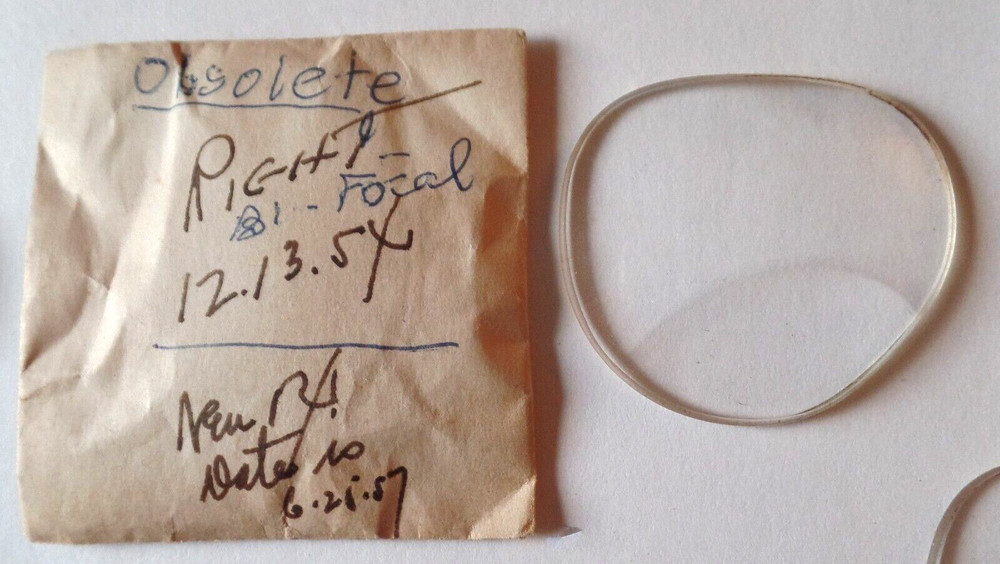 Obsolete
RIGHT -
Bi-Focal
12.13.54
New RX
Dates is
6.25.57